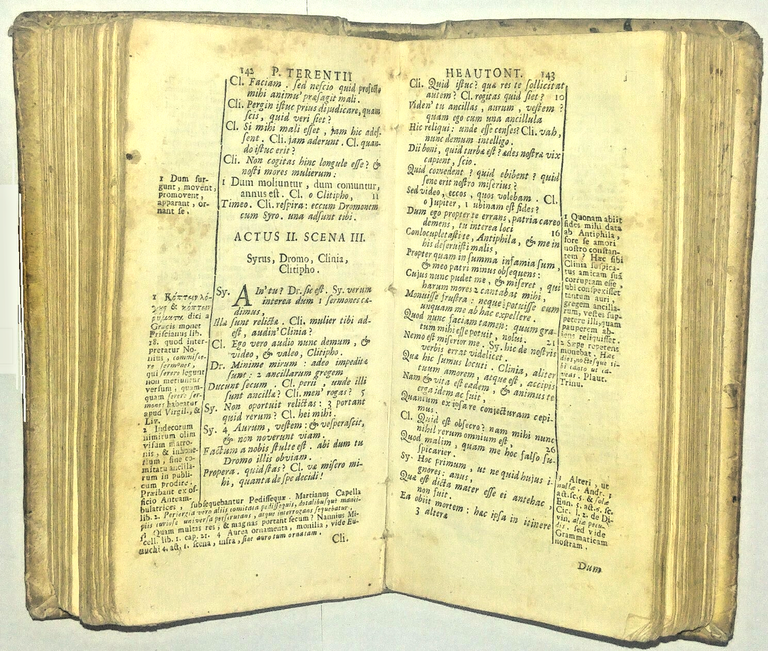 142 P. TERENTII
Cl. Faciam. sed nescio quid profecto
mihi animu' præsagit mali.
Cli. Pergin istuc prius dijudicare, quam
scis, quid veri siet?
Cl. Si mihi mali esset, jam hic ades-
sent. Cli. jam aderunt. Cl. quan-
do istuc erit?
Cli. Non cogitas hinc longule esse? &
nosti mores mulierum:
1 Dum moliuntur, dum comuntur,
annus est. Cl. o Clitipho, 11
Timeo. Cli. respira: eccum Dromonem
cum Syro. una adsunt tibi.
1 Dum sur-
gunt, movent,
promovent,
apparant, or-
nant se.
ACTUS II. SCENA III.
Syrus, Dromo, Clinia,
Clitipho.
Sy. AIn' tu? Dr. sic est. Sy. verum
interea dum 1 sermones cæ-
dimus,
Illæ sunt relictæ. Cli. mulier tibi ad-
est, audin' Clinia?
Cl. Ego vero audio nunc demum, &
video, & valeo, Clitipho.
Dr. Minime mirum: adeo impeditæ
sunt: 2 ancillarum gregem
Ducunt secum. Cl. perii, unde illi
sunt ancillæ? Cli. men' rogas? 5
Sy. Non oportuit relictas: 3 portant
quid rerum? Cl. hei mihi.
Sy. 4 Aurum, vestem: & vesperascit,
& non noverunt viam.
Factum a nobis stulte est. abi dum tu
Dromo illis obviam.
Propera. quid stas? Cl. væ misero mi-
hi, quanta de spe decidi!
dici a
Græcis monet
Priscianus lib.
18. quod inter-
pretatur No-
nius, commisce-
re sermones,
qui serere legunt
non metiuntur
versum, quam-
quam serere ser-
mones habeatur
apud Virgil. &
Liv.
2 Indecorum
nimirum olim
visum matro-
nis, & inhone-
stum, sine co-
mitatu ancilla-
rum in publi-
cum prodire.
Præibant ex of-
ficio Anteam-
bulatrices, subsequebantur Pedissequæ. Martianus Capella
lib. 2.
3 Quam multri res; & magnas portant secum? Nannius Mi-
scell. lib. 1. cap. 21. 4 Aurea ornamenta, monilia, vide Eu-
nuchi 4. act. 1. scena, infra, sine auro tum ornatam.
Cli.
HEAUTONT. 143
Cli. Quid istuc? quæ res te sollicitat
autem? Cl. rogitas quid siet? 10
Viden' tu ancillas, aurum, vestem?
quam ego cum una ancillula
Hic reliqui: unde esse censes? Cli. vah,
nunc demum intelligo.
Dii boni, quid turbæ est? ædes nostræ vix
capient, scio.
Quid comedent? quid ebibent? quid
sene erit nostro miserius?
Sed video, eccos, quos volebam. Cl.
o Jupiter, 1 ubinam est fides?
Dum ego propter te errans, patria careo
demens, tu interea loci 16
Conlocupletasti te, Antiphila, & me in
his deseruisti malis,
Propter quam in summa infamia sum,
& meo patri minus obsequens:
Cujus nunc pudet me, & miseret, qui
harum mores 2 cantabat mihi,
Monuisse frustra: neque potuisse cum
unquam me ab hac expellere.
Quod nunc faciam tamen: quum gra-
tum mihi esse potuit, nolui. 21
Nemo est miserior me. Sy. hic de nostris
verbis errat videlicet.
Quæ hic sumus locuti. Clinia, aliter
tuum amorem, atque est, accipis
Nam & vita est eadem, & animus te
erga idem ac fuit,
Quantum ex ipsa re conjecturam cepi-
mus.
Cl. Quid est obsecro? nam mihi nunc
nihil rerum omnium est, 26
Quod malim, quam me hoc falso su-
spicarier.
Sy. Hoc primum, ut ne quid hujus i-
gnores: anus,
Quæ est dicta mater esse ei antehac
non fuit.
Ea obiit mortem: hac ipsa in itinere
3 alteræ
1 Quonam abiit
fides mihi data
ab Antiphila,
fore se amori
nostro constan-
tem? Hæc sibi
Clinia suspica-
tus amicam suam
corruptam esse,
ubi conspexisset
tantum auri,
gregem ancilla-
rum, vestes sup-
petere illi, quam
pauperem abi-
ens reliquisset.
2 Sæpe repetens
monebat.
Plaut.
Trinu.
3 Alteri, ut
Andr. 1
act. sc.
Eun. 5. act. sc.
Cic. l. 2. de Di-
vin.
sed vide
Grammaticam
nostram.
Dum